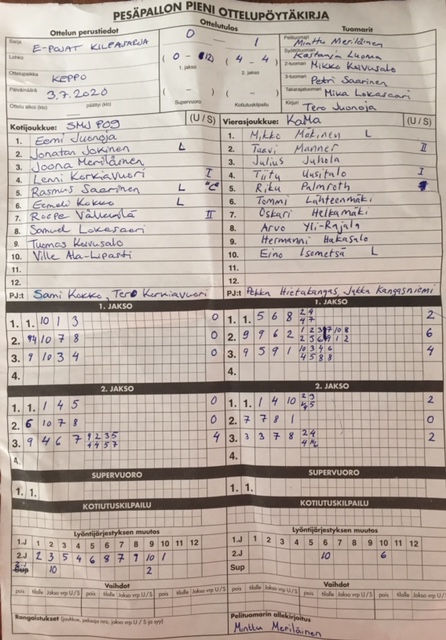 PESÄPALLON PIENI OTTELUPÖYTÄKIRJA
Ottelun perustiedot Ottelutulos Tuomarit
Sarja E-POJAT KILPASARJA 0 – 1 Pelituomari Minttu Meriläinen
Lohko ( 0 – 12) ( 4 – 4 Syöttötuomari Kastanja Luoma
1. jakso 2. jakso 2-tuomari Mikko Kuvusalo
Ottelupaikka KEPPO 3-tuomari Petri Saarinen
Päivämäärä 3.7.2020 ( – ) ( – ) Takarajatuomari Miika Lokasaari
Ottelu alkoi (klo) päättyi (klo) Supervuoro Kotiutuskilpailu Kirjuri Tero Juonoja
Kotijoukkue: SMJ P09 (U / S) Vierasjoukkue: KaMa (U / S)
1. Eemi Juonoja 1. Mikko Mäkinen L
2. Jonatan Jokinen L 2. Taavi Manner II
3. Joona Meriläinen 3. Julius Juhola
4. Lenni Korkiavuori I 4. Tiitu Uusitalo I
5. Rasmus Saarinen L "C" 5. Riku Palmroth
6. Eemeli Kokko L 6. Tommi Lähteenmäki
7. Roope Välkkilä II 7. Oskari Helkamäki
8. Samuel Lokasaari 8. Arvo Yli-Rajala
9. Tuomas Kuvusalo 9. Hermanni Hakasalo
10. Ville Ala-Lipasti 10. Eino Isometsä L
11. 11.
12. 12.
PJ:t Sami Kokko, Tero Korkiavuori PJ:t Pekka Hietakangas, Jukka Kangasniemi
1. JAKSO 1. JAKSO
1. 1. 10 1 3 0 1. 1. 5 6 8 2 4 4 7 2
2. 10 7 8 0 2. 9 9 6 2 6
3. 9 10 3 4 0 3. 9 5 9 1 10 3 4 6 4 5 8 8 4
4. 4.
2. JAKSO 2. JAKSO
1. 1. 1 4 5 0 1. 1. 1 4 10 2
2. 6 10 7 8 0 2. 7 7 8 1 0
3. 9 4 6 7 4 3. 3 3 7 8 2
4. 4.
SUPERVUORO SUPERVUORO
1. 1. 1. 1.
KOTIUTUSKILPAILU KOTIUTUSKILPAILU
Lyöntijärjestyksen muutos Lyöntijärjestyksen muutos
1.J 1 2 3 4 5 6 7 8 9 10 11 12 1.J 1 2 3 4 5 6 7 8 9 10 11 12
2.J 2 3 5 4 6 8 7 9 10 1 2.J 10 6
10 2 Sup
Vaihdot Vaihdot
pois tilalle Jakso vrp U / S pois tilalle Jakso vrp U / S pois tilalle Jakso vrp U / S pois tilalle Jakso vrp U / S
Rangaistukset (joukkue, pelaaja nro, jakso vrp U / S ja syy) Pelituomarin allekirjoitus
Minttu Meriläinen